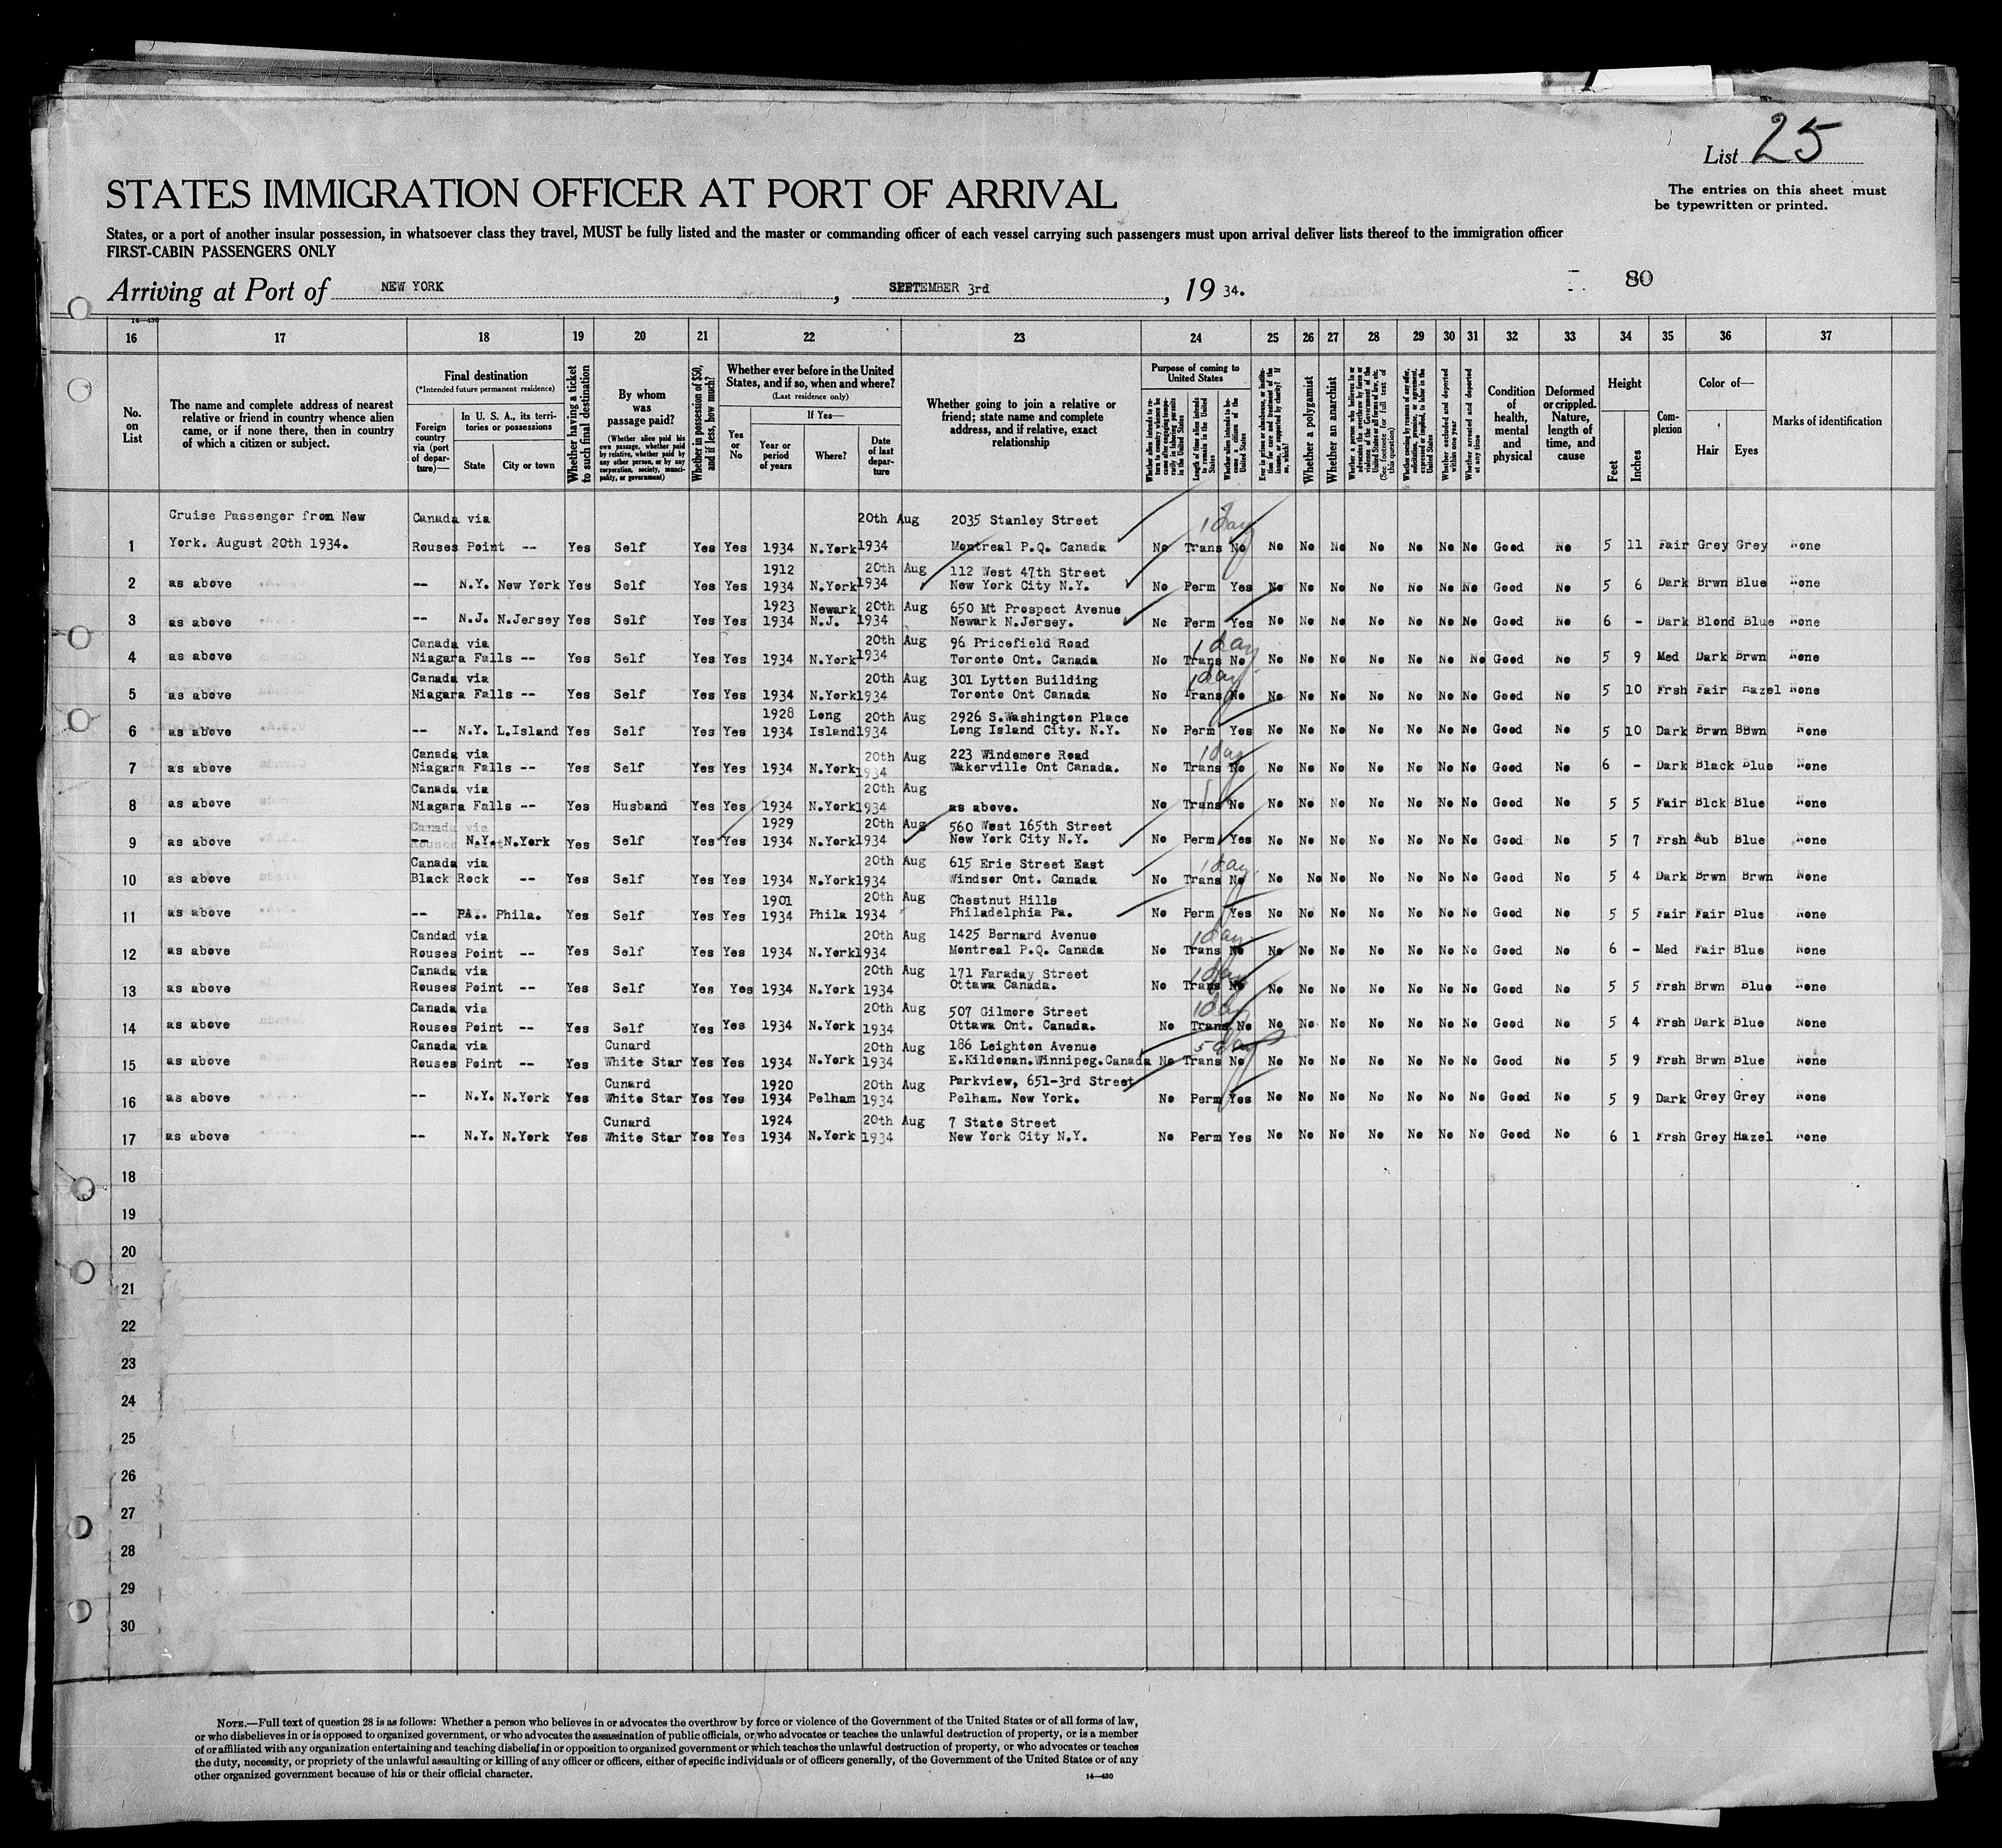 List 25
STATES IMMIGRATION OFFICER AT PORT OF ARRIVAL
The entries on this sheet must
be typewritten or printed.
States, or a port of another insular possession, in whatsoever class they travel, MUST be fully listed and the master or commanding officer of each vessel carrying such passengers must upon arrival deliver lists thereof to the immigration officer
FIRST-CABIN PASSENGERS ONLY
80
Arriving at Port of NEW YORK, SEPTEMBER 3rd, 19 34.
14—430
16 17 18 19 20 21 22 23 24 25 26 27 28 29 30 31 32 33 34 35 36 37
No. on List
The name and complete address of nearest relative or friend in country whence alien came, or if none there, then in country of which a citizen or subject.
Final destination
(*Intended future permanent residence)
Foreign country via (port of departure)—
In U. S. A., its territories or possessions
State
City or town
Whether having a ticket to such final destination
By whom was passage paid?
(Whether alien paid his own passage, whether paid by relative, whether paid by any other person, or by any corporation, society, municipality, or government)
Whether in possession of $50, and if less, how much?
Whether ever before in the United States, and if so, when and where?
(Last residence only)
Yes or No
If Yes—
Year or period of years
Where?
Date of last departure
Whether going to join a relative or friend; state name and complete address, and if relative, exact relationship
Purpose of coming to United States
Whether alien intends to return to country whence he came after engaging temporarily in laboring pursuits in the United States
Length of time alien intends to remain in the United States
Whether alien intends to become a citizen of the United States
Ever in prison or almshouse, or institution for care and treatment of the insane, or supported by charity? If so, which?
Whether a polygamist
Whether an anarchist
Whether a person who believes in or advocates the overthrow by force or violence of the Government of the United States or all forms of law, etc. (See footnote for full text of this question)
Whether coming by reasons of any offer, solicitation, promise, or agreement, expressed or implied, to labor in the United States
Whether excluded and deported within one year
Whether arrested and deported at any time
Condition of health, mental and physical
Deformed or crippled. Nature, length of time, and cause
Height
Feet
Inches
Complexion
Color of—
Hair
Eyes
Marks of identification
Cruise Passenger from New Canada via 20th Aug 2035 Stanley Street 1 day
1 York. August 20th 1934. Rouses Point -- Yes Self Yes Yes 1934 N.York 1934 Montreal P.Q. Canada No Trans No No No No No No No No Good No 5 11 Fair Grey Grey None
1912 20th Aug 112 West 47th Street
2 as above -- N.Y. New York Yes Self Yes Yes 1934 N.York 1934 New York City N.Y. No Perm Yes No No No No No No No Good No 5 6 Dark Brwn Blue None
1923 Newark 20th Aug 650 Mt Prospect Avenue
3 as above -- N.J. N.Jersey Yes Self Yes Yes 1934 N.J. 1934 Newark N.Jersey. No Perm Yes No No No No No No No Good No 6 - Dark Blond Blue None
Canada via 20th Aug 96 Pricefield Road 1 day
4 as above Niagara Falls -- Yes Self Yes Yes 1934 N.York 1934 Toronto Ont. Canada No Trans No No No No No No No No Good No 5 9 Med Dark Brwn None
Canada via 20th Aug 301 Lytton Building 1 day
5 as above Niagara Falls -- Yes Self Yes Yes 1934 N.York 1934 Toronto Ont Canada No Trans No No No No No No No No Good No 5 10 Frsh Fair Hazel None
1928 Long 20th Aug 2926 S.Washington Place
6 as above -- N.Y. L.Island Yes Self Yes Yes 1934 Island 1934 Long Island City. N.Y. No Perm Yes No No No No No No No Good No 5 10 Dark Brwn BBwn None
Canada via 20th Aug 223 Windemere Road 1 day
7 as above Niagara Falls -- Yes Self Yes Yes 1934 N.York 1934 Wakerville Ont Canada. No Trans No No No No No No No No Good No 6 - Dark Black Blue None
Canada via 20th Aug
8 as above Niagara Falls -- Yes Husband Yes Yes 1934 N.York 1934 as above. No Trans No No No No No No No No Good No 5 5 Fair Blck Blue None
Canada via 1929 20th Aug 560 West 165th Street
9 as above -- N.Y. N.York Yes Self Yes Yes 1934 N.York 1934 New York City N.Y. No Perm Yes No No No No No No No Good No 5 7 Frsh Aub Blue None
Canada via 20th Aug 615 Erie Street East 1 day.
10 as above Black Rock -- Yes Self Yes Yes 1934 N.York 1934 Windsor Ont. Canada No Trans No No No No No No No No Good No 5 4 Dark Brwn Brwn None
1901 20th Aug Chestnut Hills
11 as above -- PA.. Phila. Yes Self Yes Yes 1934 Phila 1934 Philadelphia Pa. No Perm Yes No No No No No No No Good No 5 5 Fair Fair Blue None
Candad via 20th Aug 1425 Bernard Avenue 1 day
12 as above Rouses Point -- Yes Self Yes Yes 1934 N.York 1934 Montreal P.Q. Canada No Trans No No No No No No No No Good No 6 - Med Fair Blue None
Canada via 20th Aug 171 Faraday Street 1 day
13 as above Rouses Point -- Yes Self Yes Yes 1934 N.York 1934 Ottawa Canada. No Trans No No No No No No No No Good No 5 5 Frsh Brwn Blue None
Canada via 20th Aug 507 Gilmore Street 1 day
14 as above Rouses Point -- Yes Self Yes Yes 1934 N.York 1934 Ottawa Ont. Canada. No Trans No No No No No No No No Good No 5 4 Frsh Dark Blue None
Canada via Cunard 20th Aug 186 Leighton Avenue 5 day
15 as above Rouses Point -- Yes White Star Yes Yes 1934 N.York 1934 E.Kildonan.Winnipeg.Canada No Trans No No No No No No No No Good No 5 9 Frsh Brwn Blue None
Cunard 1920 20th Aug Parkview, 651-3rd Street
16 as above -- N.Y. N.York Yes White Star Yes Yes 1934 Pelham 1934 Pelham. New York. No Perm Yes No No No No No No No Good No 5 9 Dark Grey Grey None
Cunard 1924 20th Aug 7 State Street
17 as above -- N.Y. N.York Yes White Star Yes Yes 1934 N.York 1934 New York City N.Y. No Perm Yes No No No No No No No Good No 6 1 Frsh Grey Hazel None
18
19
20
21
22
23
24
25
26
27
28
29
30
NOTE.—Full text of question 28 is as follows: Whether a person who believes in or advocates the overthrow by force or violence of the Government of the United States or of all forms of law,
or who disbelieves in or is opposed to organized government, or who advocates the assassination of public officials, or who advocates or teaches the unlawful destruction of property, or is a member
of or affiliated with any organization entertaining and teaching disbelief in or opposition to organized government or which teaches the unlawful destruction of property, or who advocates or teaches
the duty, necessity, or propriety of the unlawful assaulting or killing of any officer or officers, either of specific individuals or of officers generally, of the Government of the United States or of any
other organized government because of his or their official character.
14—430